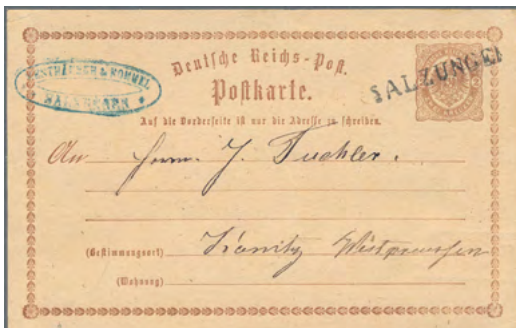 & ROMMEL
SALZUNGEN
Deutsche Reichs-Post.
Postkarte.
SALZUNGEN
Auf die Vorderseite ist nur die Adresse zu schreiben.
An Herrn J. Tuchler.
(Bestimmungsort) Konitz Westpreussen
(Wohnung)